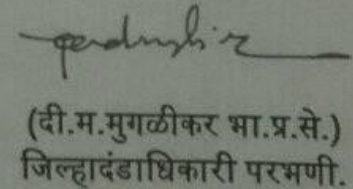 (दी.म.मुगळीकर भा.प्र.से.)
जिल्हादंडाधिकारी परभणी.